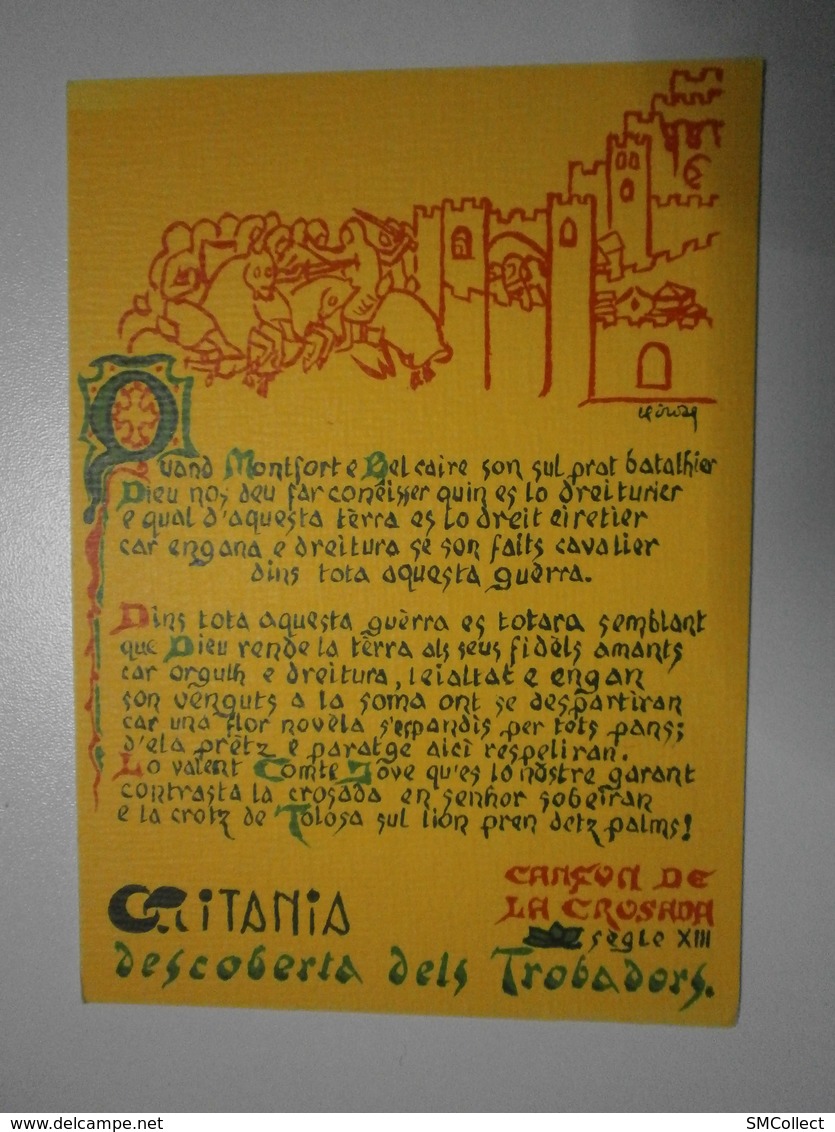 Quand Montfort e Belcaire son sul prat batalhier
Dieu nos deu far conéisser quin es lo dreiturier
e qual d'aquesta tèrra es lo dreit eiretier
car engana e dreitura se son faits cavalier
dins tota aquesta guèrra.
Dins tota aquesta guèrra es totara semblant
que Dieu rende la tèrra als seus fidèls amants
car orgulh e dreitura, leialtat e engan
son venguts a la soma ont se despartiran
car una flor novèla s'espandis per tots pans;
d'ela prètz e paratge aicí respeliran.
Lo valent Comte Jove qu'es lo nòstre garant
contrasta la crosada en senhor sobeiran
e la crotz de Tolosa sul lion pren detz palms!
CANÇON DE
LA CROSADA
segle XIII
OCCITANIA
descoberta dels Trobadors.
SMCollect